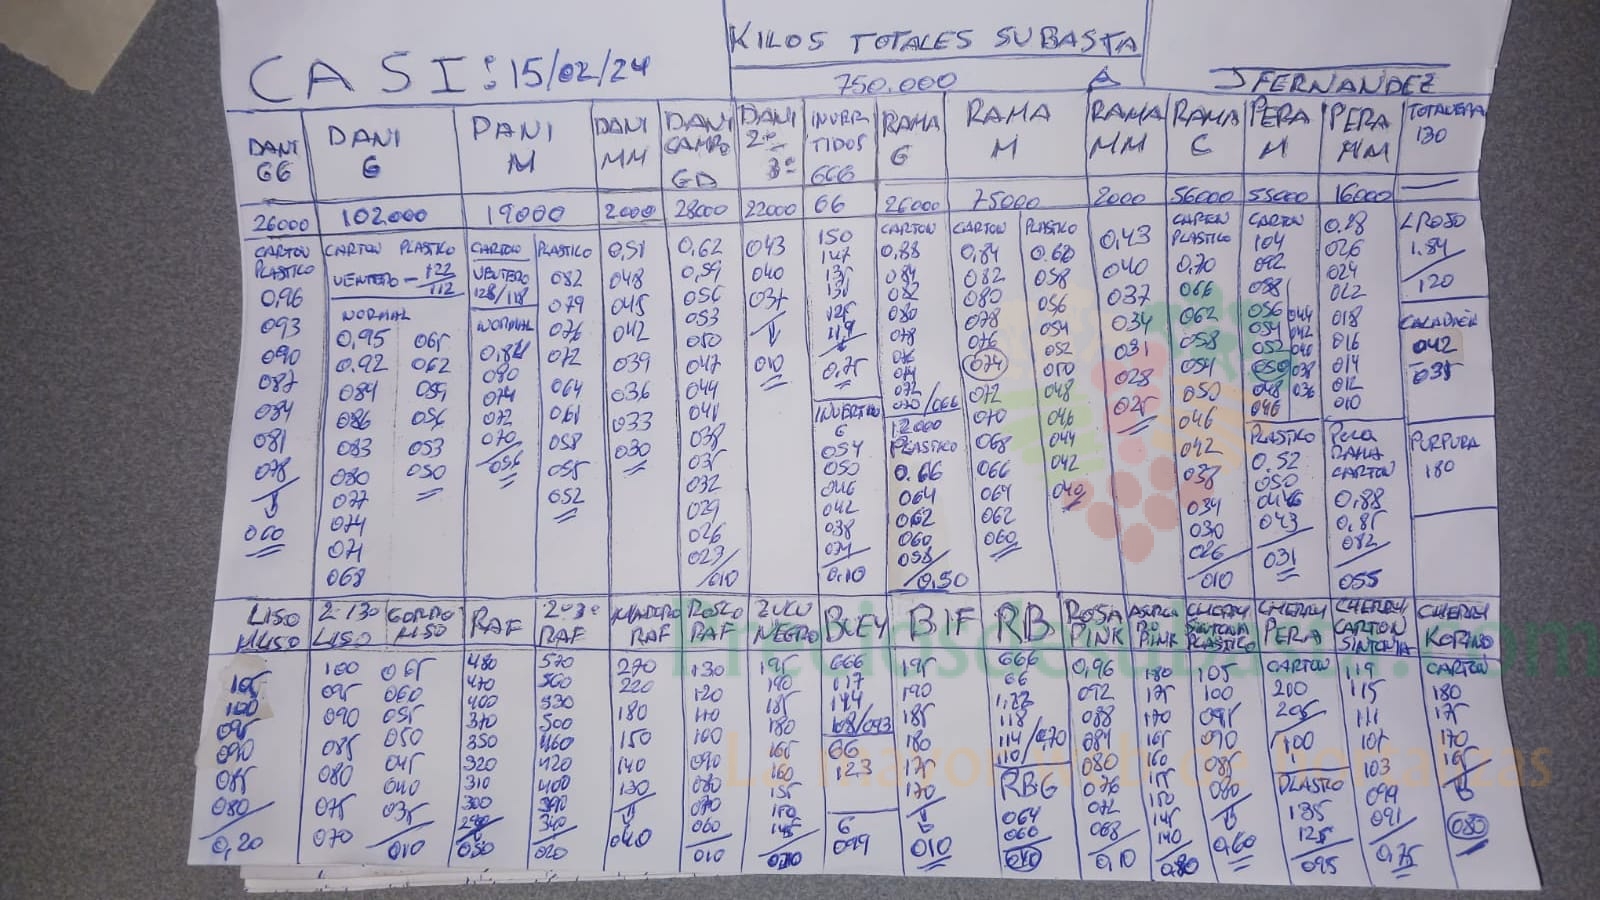 KILOS TOTALES SUBASTA
CASI: 15/02/24
750.000
J FERNANDEZ
DANI GG
DANI G
DANI M
DANI MM
DANI CAMPO GD
DANI 2ª 3ª
INVER TIDOS GGG
RAMA G
RAMA M
RAMA MM
RAMA C
PERA M
PERA MM
130
26000 102.000 19000 2000 28000 22000 GG 26000 75000 2000 56000 55000 16000
CARTON PLASTICO
0,96
093
090
087
084
081
078
060
CARTON PLASTICO
VENTERO - 122/112
NORMAL
0,95 065
0,92 062
059
086 056
083 053
080 050
077
074
071
068
CARTON
VENTERO
128/118
NORMAL
080
074
072
070
056
PLASTICO
082
079
076
072
064
061
058
055
052
0,51
048
045
042
039
036
033
030
0,62
0,59
056
053
050
047
044
041
038
035
032
029
026
023/010
043
040
037
010
150
147
0,75
G
054
050
046
042
038
0,10
CARTON
0,88
084
082
080
078
076
074
072
070/066
12000
PLASTICO
0.66
064
062
060
058/0,50
CARTON PLASTICO
0,84 0.60
082 058
080 056
078 054
076 052
074 050
072 048
070 046
068 044
066 042
064 040
062
060
0,43
040
037
034
031
028
025
CARTON
PLASTICO
0,70
066
062
058
054
050
046
042
038
034
030
026
010
CARTON
104
092
088
056 044
054 042
052 040
050 038
048 036
046
PLASTICO
0.52
050
046
043
031
0.28
026
024
022
018
016
014
012
010
PERA
RAMA
CARTON
0,88
0,85
082
055
L ROJO
1.84
120
042
035
PURPURA
180
LISO MUSO
2ª 130 LISO
GORDO MUSO
RAF
2ª 3ª RAF
MADURO RAF
ROSCO RAF
ZULU NEGRO
BUEY
BIF
RB
ROSA PINK
PINK
CHERRY SINTONIA PLASTICO
CHERRY PERA
CHERRY CARTON SINTONIA
CHERRY KORINO
105
100
095
090
085
080
0,20
100 065
095 060
090 055
085 050
080 045
075 040
070 035
010
480
470
400
370
350
320
310
300
050
570
560
530
500
460
420
400
390
340
020
270
220
180
150
140
130
040
130
120
110
100
090
080
070
060
010
195
190
185
180
165
160
155
150
145
GGG
117
114
108/093
GG
123
G
099
195
190
185
180
175
170
010
GGG
GG
1,22
118
114/070
110
RBG
064
060
040
0,96
092
088
084
080
076
072
068
0,10
180
175
170
165
160
155
150
145
140
080
105
100
095
090
085
080
0,60
CARTON
200
205
100
PLASTICO
135
125
095
119
115
111
107
103
099
091
0,75
CARTON
180
175
170
165
080
Preciosdesubasta.com
La mayor web de hortalizas